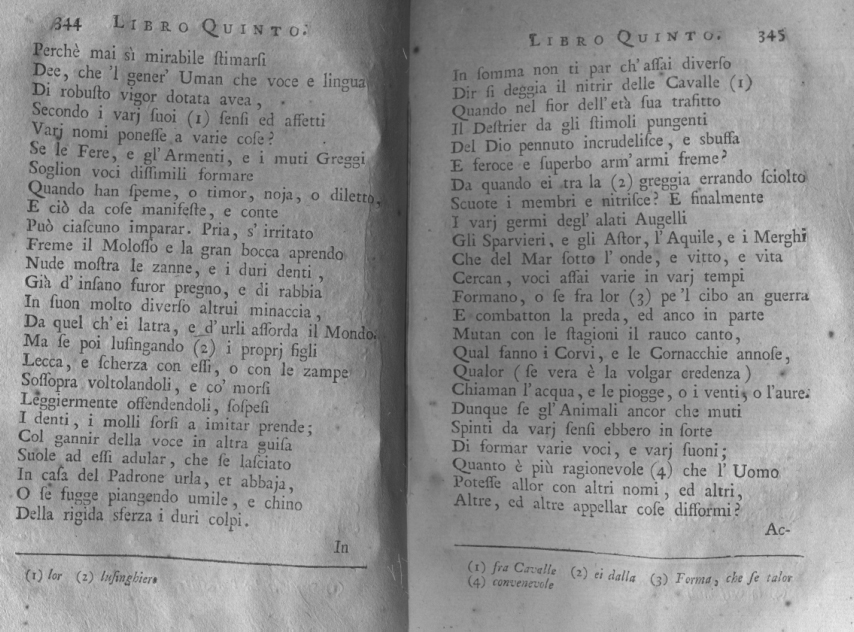 344 LIBRO QUINTO.
Perchè mai sì mirabile ſtimarſi
Dee, che 'l gener' Uman che voce e lingua
Di robuſto vigor dotata avea,
Secondo i varj ſuoi (1) ſenſi ed affetti
Varj nomi poneſſe a varie coſe?
Se le Fere, e gl' Armenti, e i muti Greggi
Soglion voci diſſimili formare
Quando han ſpeme, o timor, noja, o diletto,
E ciò da coſe manifeſte, e conte
Può ciaſcuno imparar. Pria, s' irritato
Freme il Moloſſo e la gran bocca aprendo
Nude moſtra le zanne, e i duri denti,
Già d' inſano furor pregno, e di rabbia
In ſuon molto diverſo altrui minaccia,
Da quel ch' ei latra, e d' urli aſſorda il Mondo.
Ma ſe poi luſingando (2) i proprj figli
Lecca, e ſcherza con eſſi, o con le zampe
Soſſopra voltolandoli, e co' morſi
Leggiermente offendendoli, ſoſpeſi
I denti, i molli ſorſi a imitar prende;
Col gannir della voce in altra guiſa
Suole ad eſſi adular, che ſe laſciato
In caſa del Padrone urla, et abbaja,
O ſe fugge piangendo umile, e chino
Della rigida sferza i duri colpi.
In
(1) lor (2) luſinghiero
LIBRO QUINTO. 345
In ſomma non ti par ch' aſſai diverſo
Dir ſi deggia il nitrir delle Cavalle (1)
Quando nel fior dell' età ſua trafitto
Il Deſtrier da gli ſtimoli pungenti
Del Dio pennuto incrudeliſce, e sbuffa
E feroce e ſuperbo arm' armi freme?
Da quando ei tra la (2) greggia errando ſciolto
Scuote i membri e nitriſce? E finalmente
I varj germi degl' alati Augelli
Gli Sparvieri, e gli Aſtor, l' Aquile, e i Merghi
Che del Mar ſotto l' onde, e vitto, e vita
Cercan, voci aſſai varie in varj tempi
Formano, o ſe fra lor (3) pe 'l cibo an guerra
E combatton la preda, ed anco in parte
Mutan con le ſtagioni il rauco canto,
Qual fanno i Corvi, e le Cornacchie annoſe,
Qualor (ſe vera è la volgar credenza)
Chiaman l' acqua, e le piogge, o i venti, o l' aure.
Dunque ſe gl' Animali ancor che muti
Spinti da varj ſenſi ebbero in ſorte
Di formar varie voci, e varj ſuoni;
Quanto è più ragionevole (4) che l' Uomo
Poteſſe allor con altri nomi, ed altri,
Altre, ed altre appellar coſe difformi?
Ac-
(1) fra Cavalle (2) ei dalla (3) Forma, che ſe talor
(4) convenevole